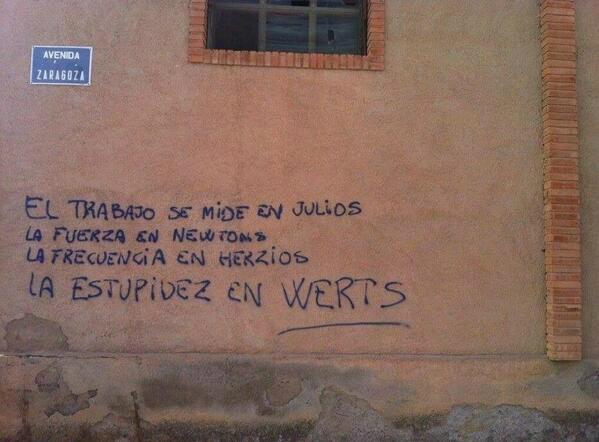 AVENIDA
ZARAGOZA
EL TRABAJO SE MIDE EN JULIOS
LA FUERZA EN NEWTONS
LA FRECUENCIA EN HERZIOS
LA ESTUPIDEZ EN WERTS